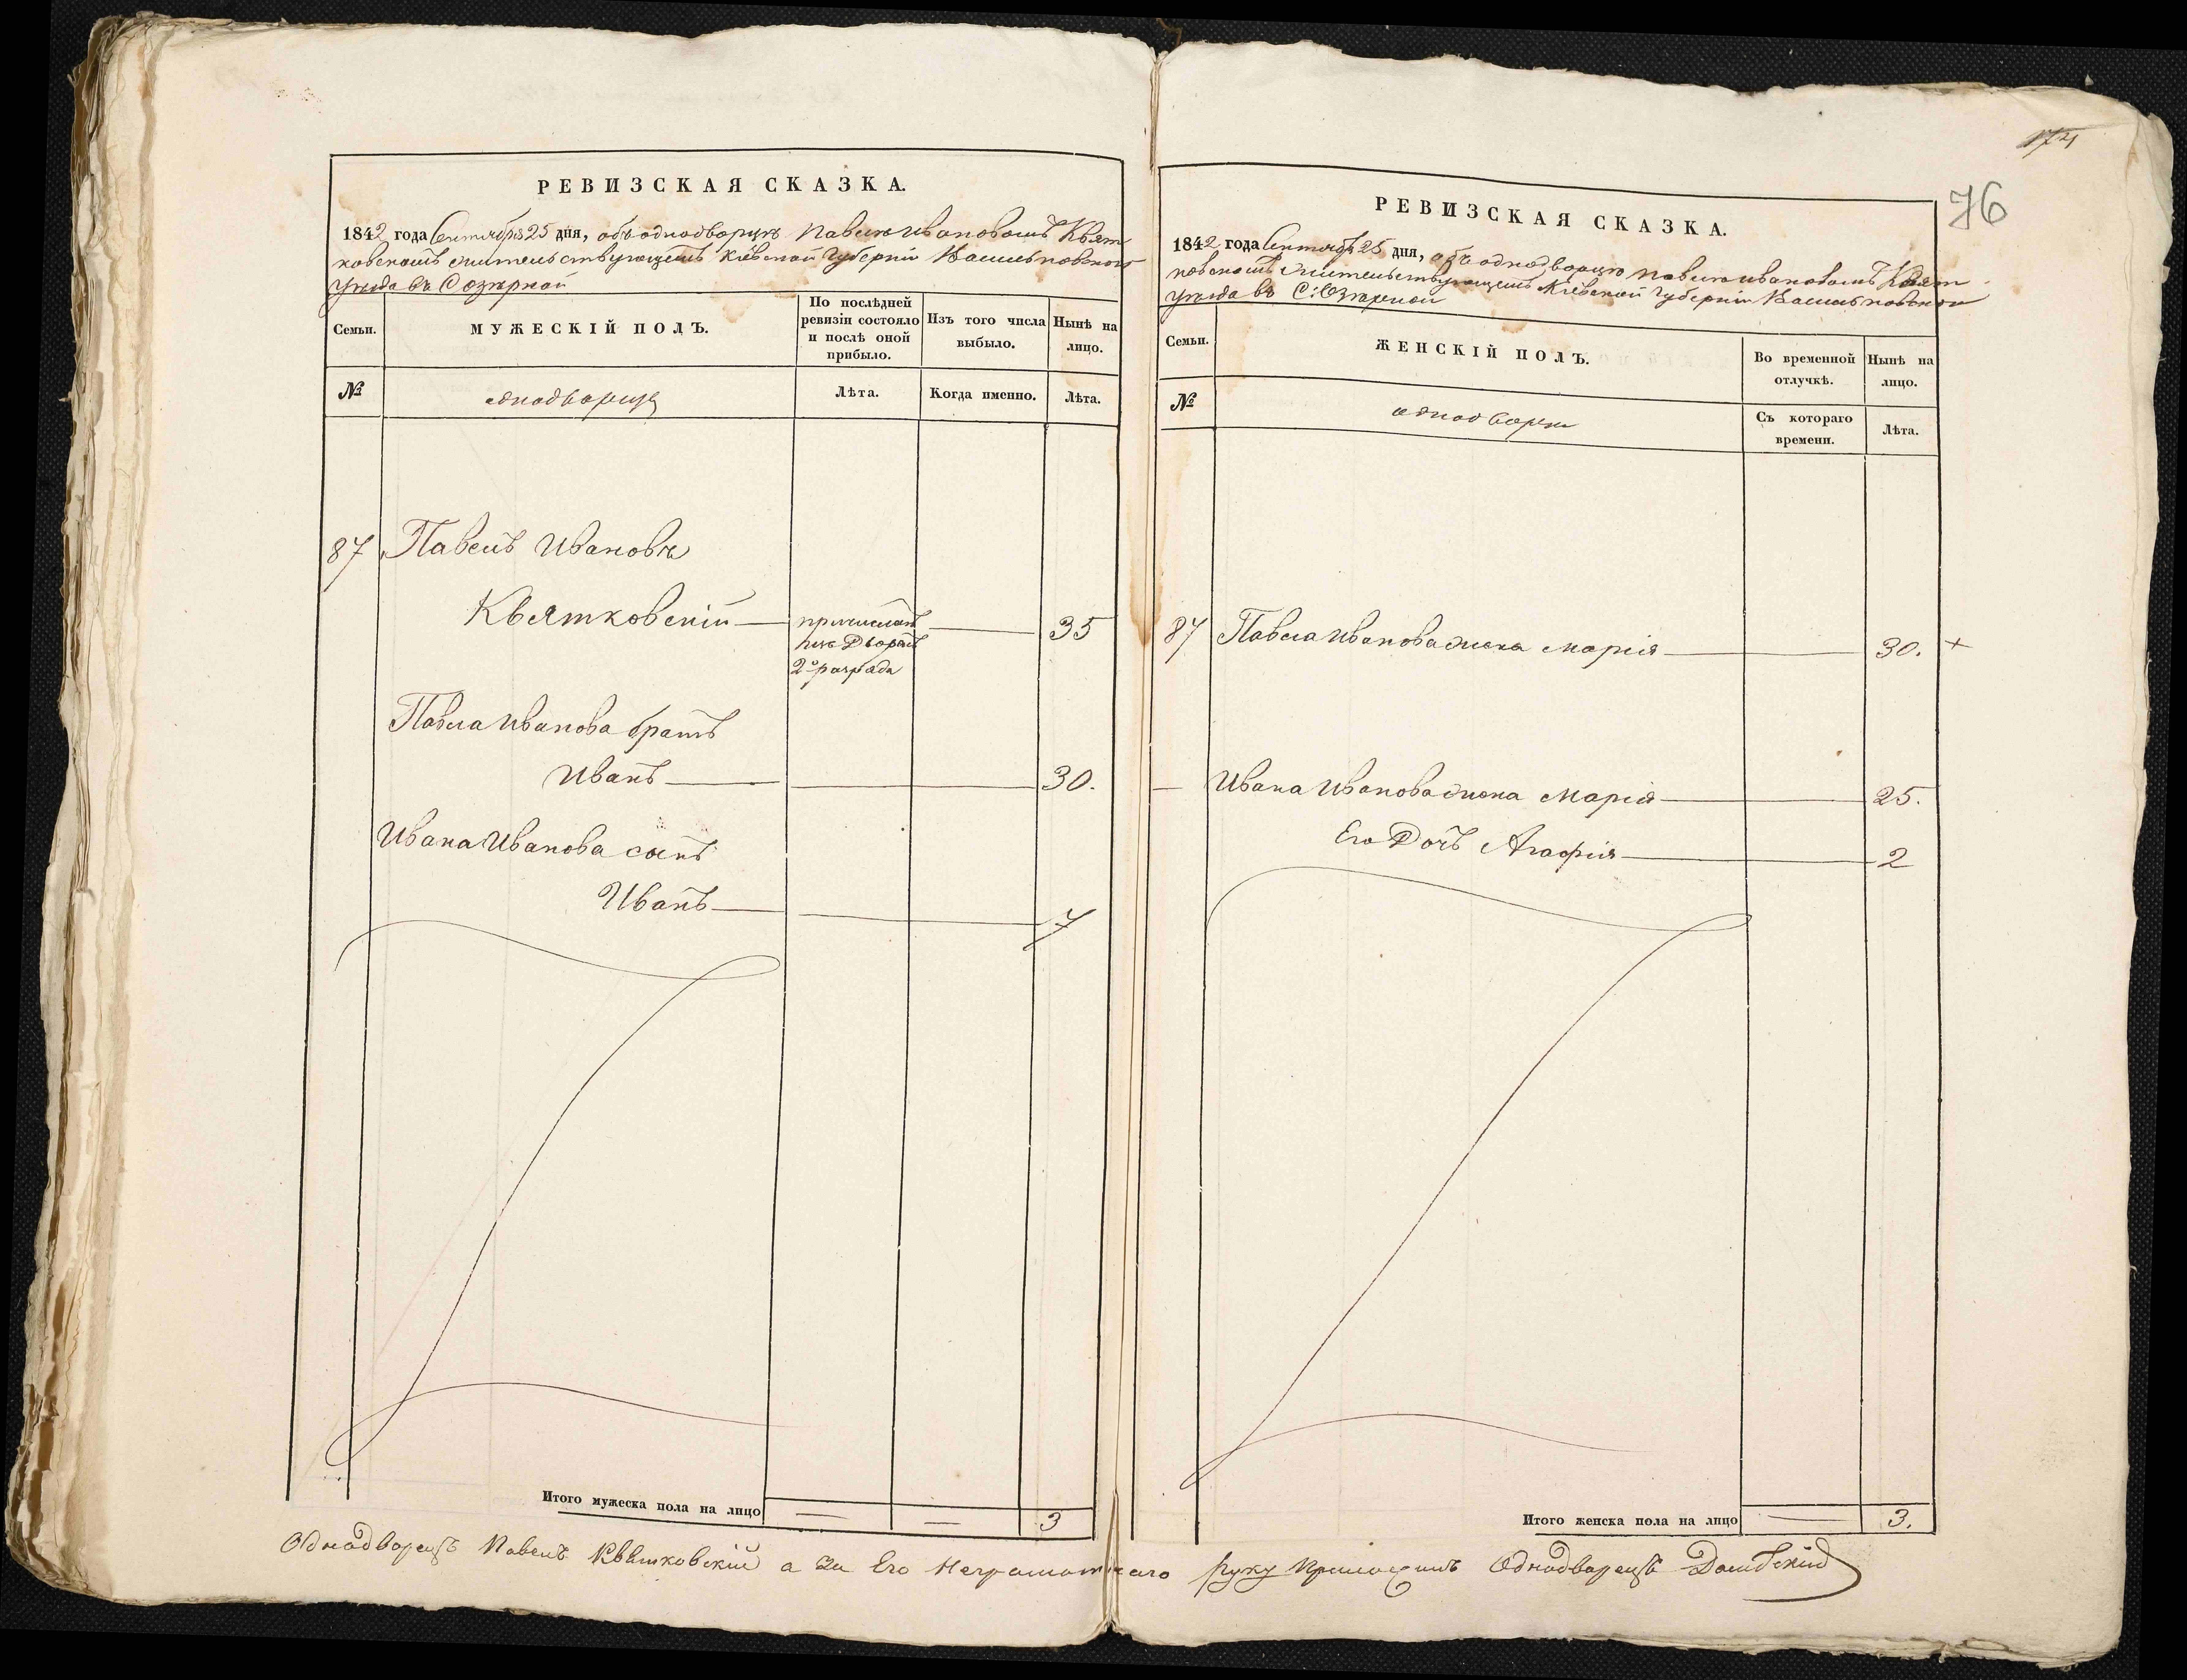 РЕВИЗСКАЯ СКАЗКА.
1842 года Сентября 25 дня, объ однодворцѣ Павлѣ Ивановомъ Квят
ковскомъ жительствующемъ Кіевской Губерніи Васильковскаго
уѣзда въ С Озѣрной
Семьи.
МУЖЕСКІЙ ПОЛЪ.
По послѣдней ревизіи состояло и послѣ оной прибыло.
Изъ того числа выбыло.
Нынѣ на лицо.
№
однодворцы
Лѣта.
Когда именно.
Лѣта.
87 Павелъ Ивановъ
Квятковскій 35
причисленъ
изъ Дворянъ
2го разряда
Павла Иванова братъ
Иванъ 30.
Ивана Иванова сынъ
Иванъ 7
Итого мужеска пола на лицо 3
174
76
РЕВИЗСКАЯ СКАЗКА.
1842 года Сентября 25 дня, объ однодворцѣ Павлѣ Ивановомъ Квят
ковскомъ жительствующемъ Кіевской Губерніи Васильковскаго
уѣзда въ С. Озѣрной
Семьи.
ЖЕНСКІЙ ПОЛЪ.
Во временной отлучкѣ.
Нынѣ на лицо.
№
однодворки
Съ котораго времени.
Лѣта.
87 Павла Иванова жена Марія 30. +
Ивана Иванова жена Марія 25.
Его Дочь Агафія 2
Итого женска пола на лицо 3.
Однодворецъ Павелъ Квятковскій а за Его Неграмотнаго руку Приложилъ Однодворецъ Домбскій